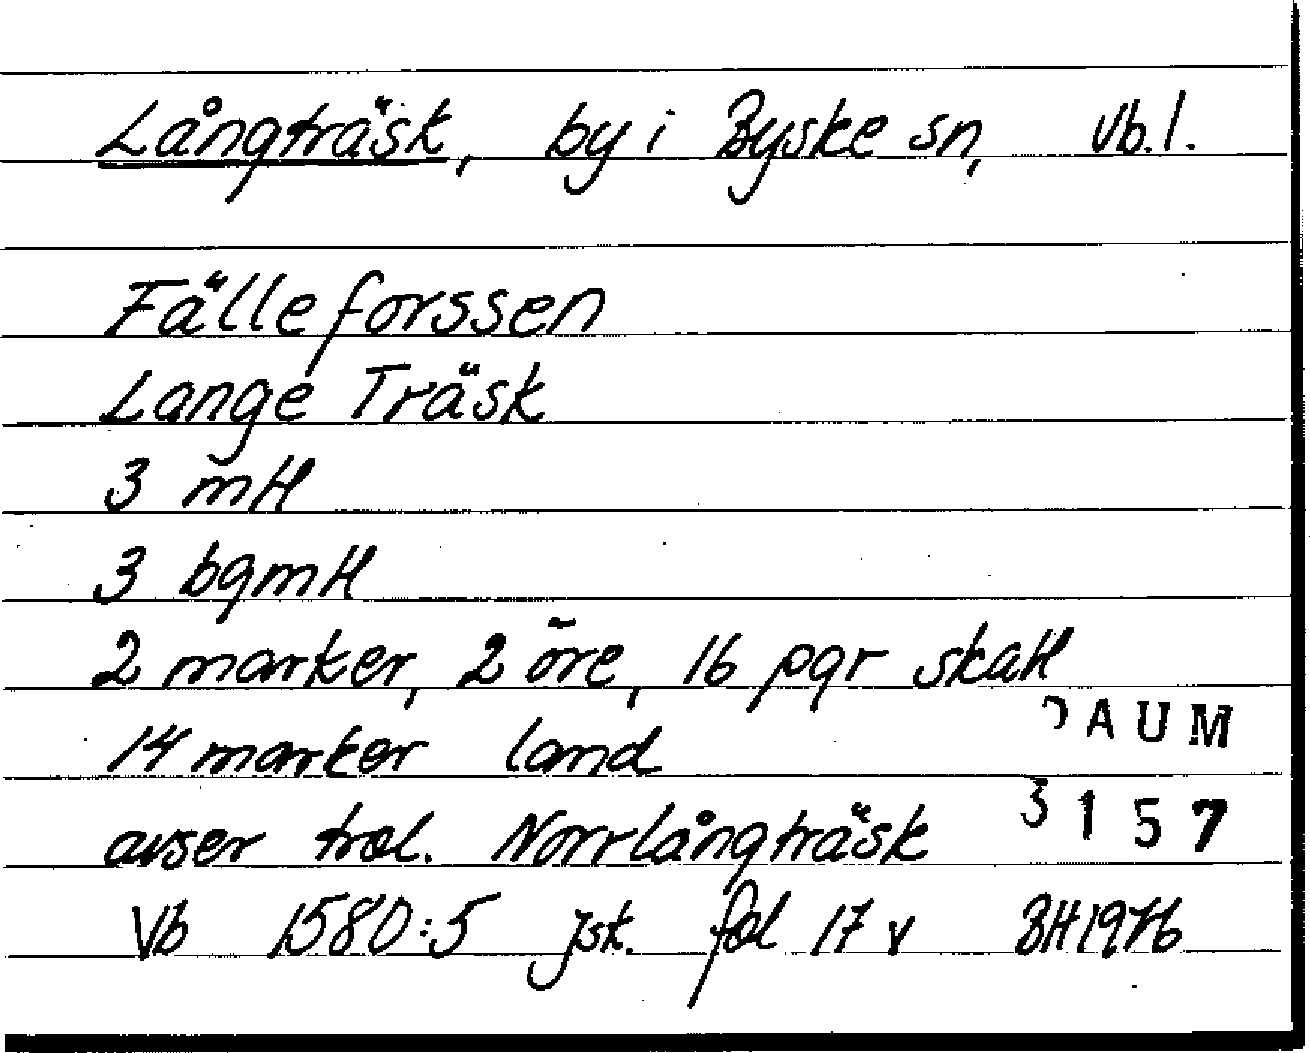 Långträsk, by i Byske sn, Vb.l.
Fälleforssen
Lange Träsk
3 mtl
3 bgmtl
2 marker, 2 öre, 16 pgr skatt
14 marker land
DAUM
avser trol. Norrlångträsk
3157
Vb 1580:5 jsk. fol 17 v BH 1976